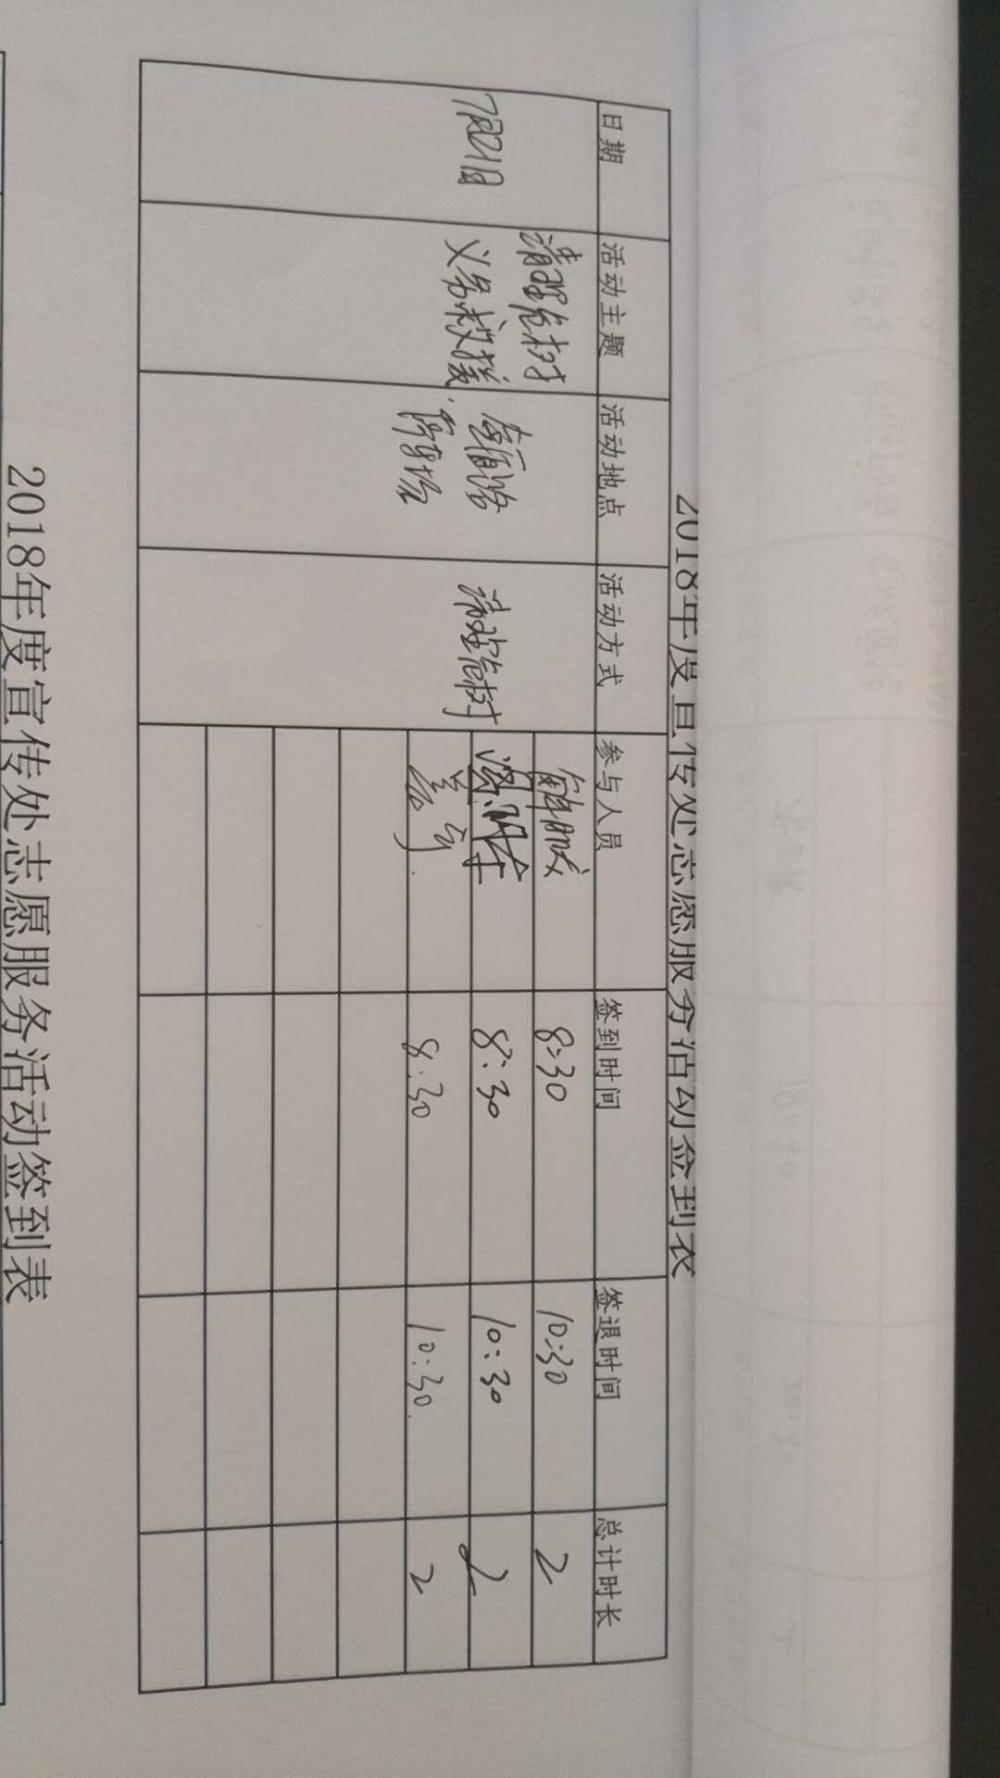 2018年度宣传处志愿服务活动签到表
日期 活动主题 活动地点 活动方式 参与人员 签到时间 签退时间 总计时长
7月21日
清理危树
义务救援
清理危树
8:30 10:30 2
8:30 10:30 2
8:30 10:30 2
2018年度宣传处志愿服务活动签到表